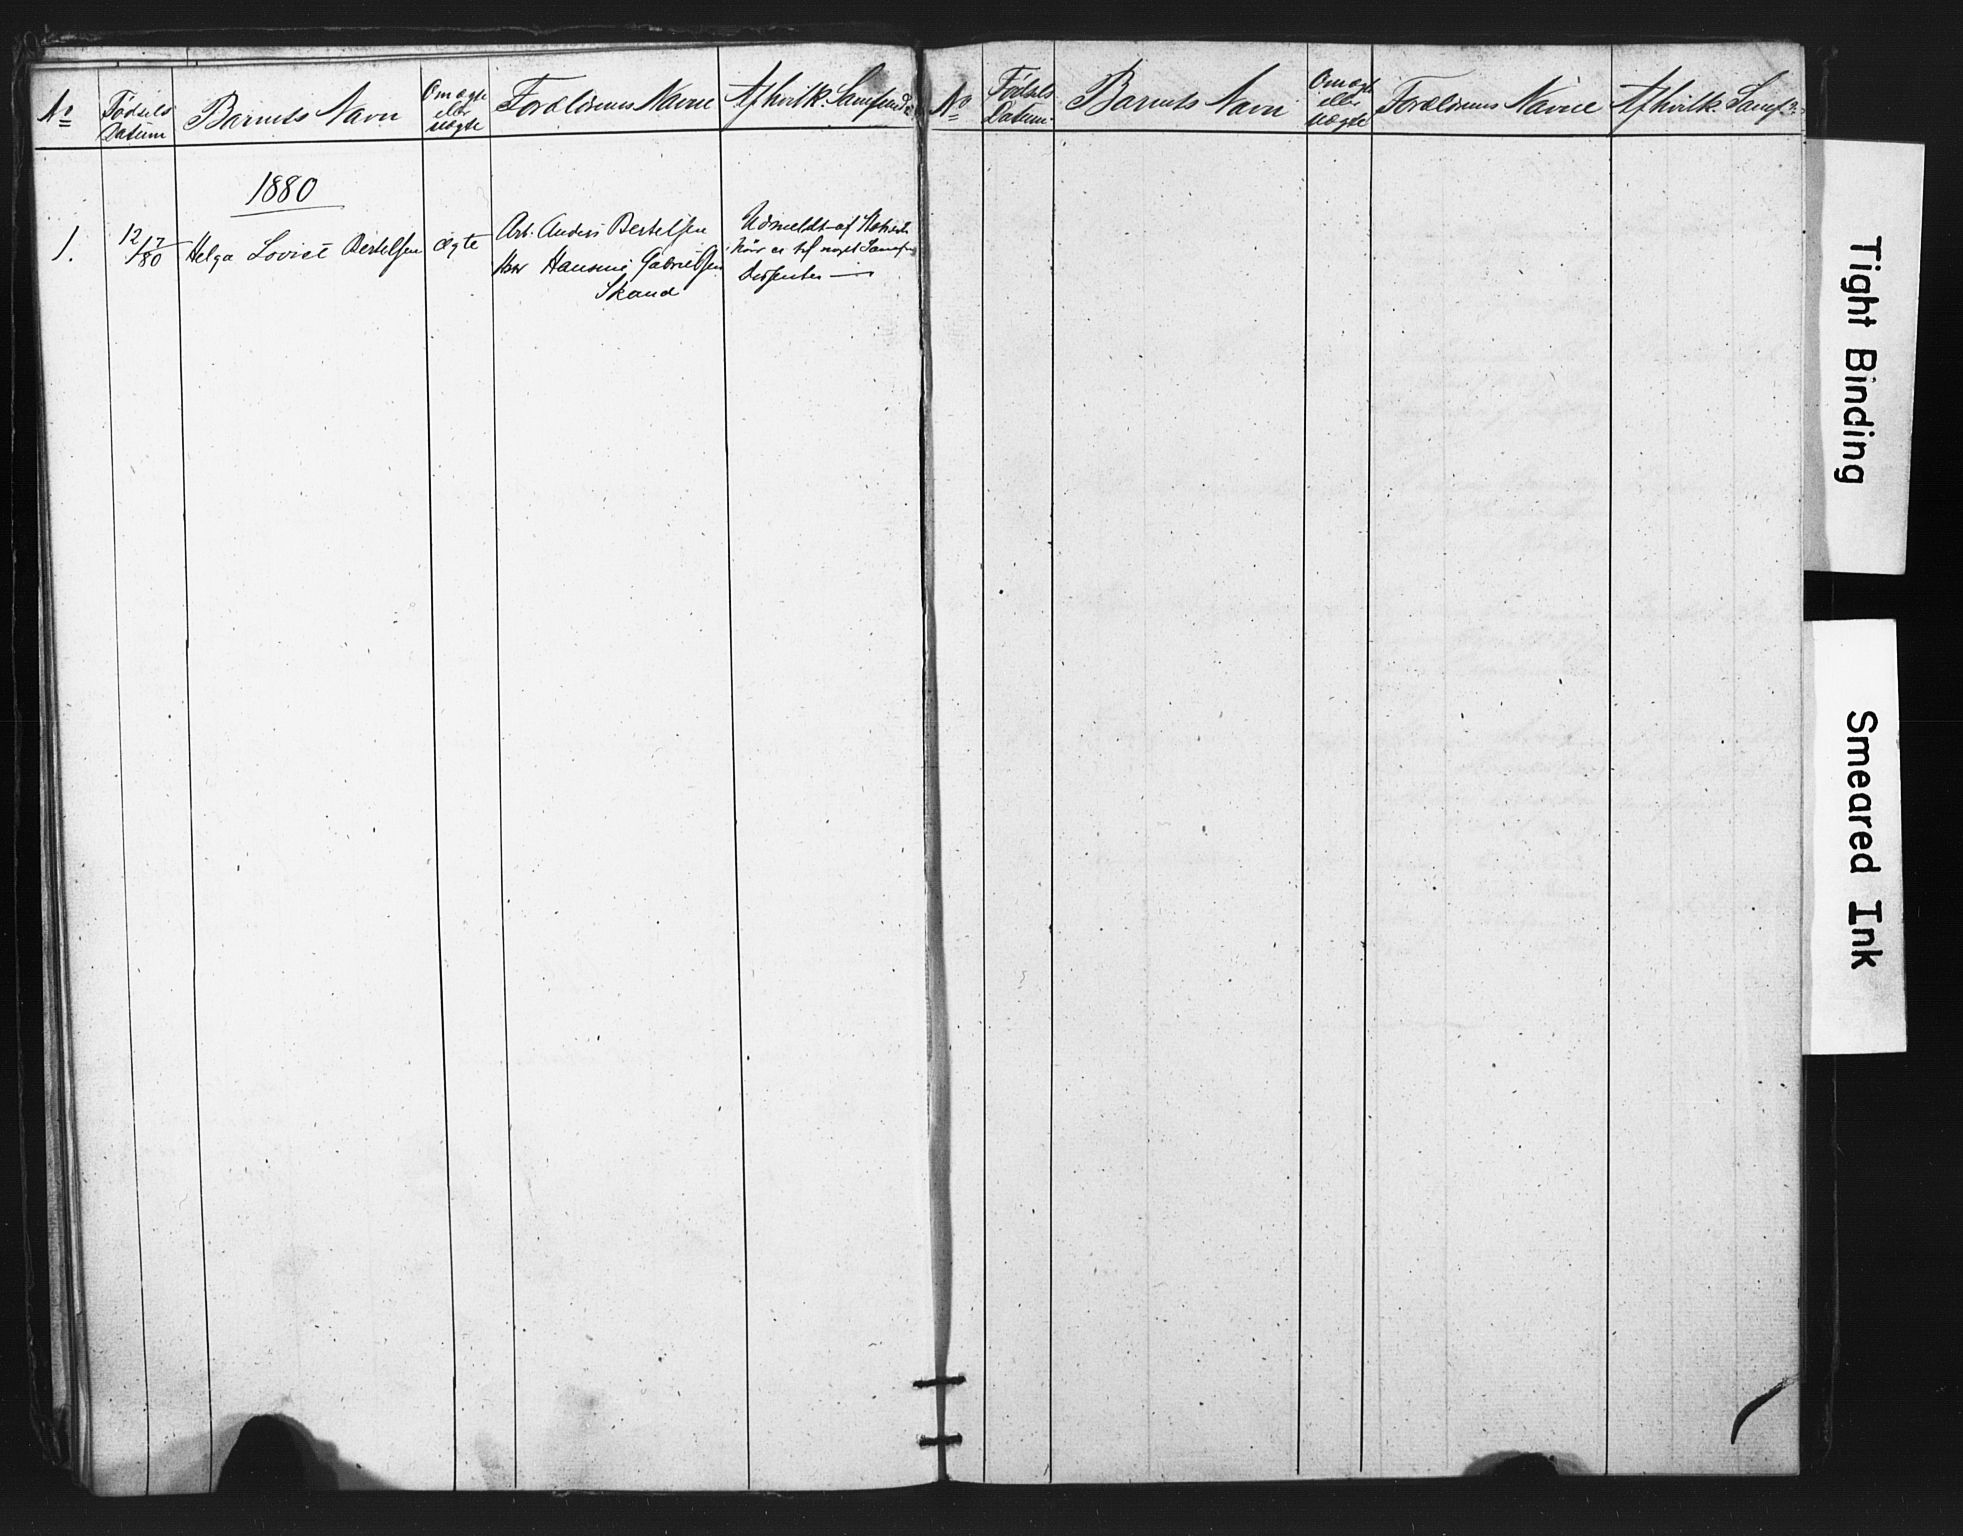 No
Fødsels
Datum
Barnets Navn
Om ægte
eller
uægte
Forældrenes Navne
Af hvilk. Samfund
1880
1.
12/7
/80
Helga Lovise Bertelsen
ægte
Arb. Anders Bertelsen
Hansine Gabrielsen
Skand
Udmeldt af
er af noget
Dissenter
No
Fødsels
Datum.
Barnets Navn
Om ægte
eller
uægte
Forældrenes Navne
Af hvilk. Samf
Tight Binding
Smeared Ink